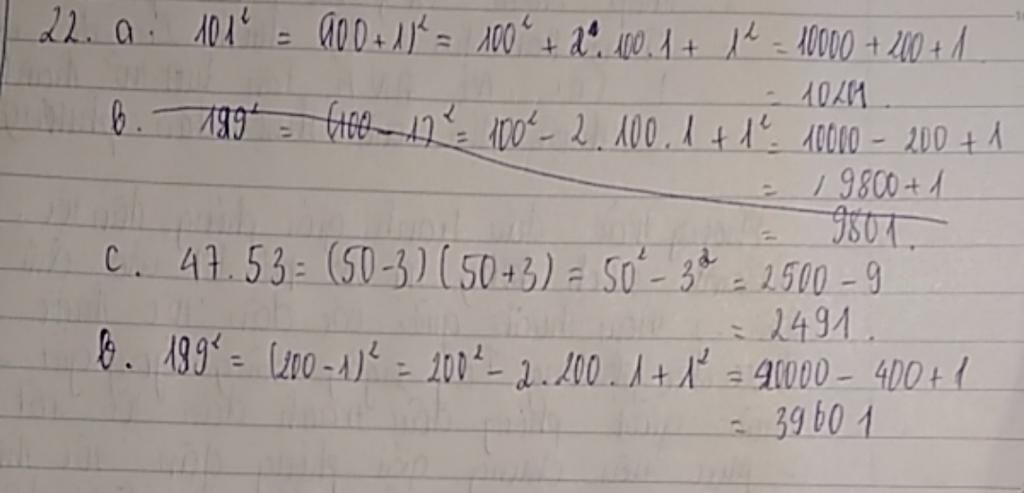 22. a. 101² = (100+1)² = 100² + 2.100.1 + 1² = 10000 + 200 + 1
= 10201.
b. 199² = (100 - 1)² = 100² - 2.100.1 + 1² = 10000 - 200 + 1
= 9800 + 1
= 9801.
c. 47.53 = (50-3)(50+3) = 50² - 3² = 2500 - 9
= 2491.
b. 199² = (200-1)² = 200² - 2.200.1 + 1² = 40000 - 400 + 1
= 39601